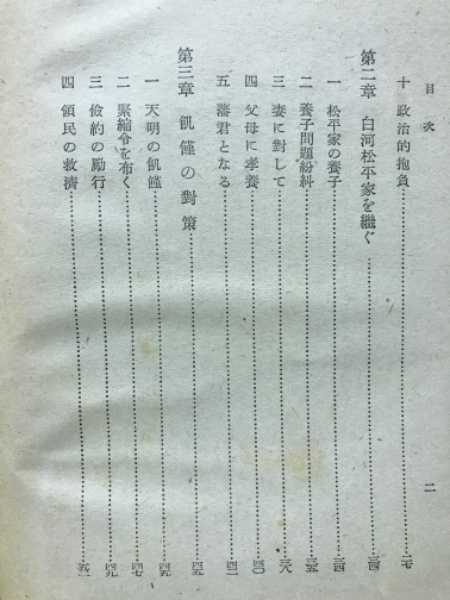 目次
十 政治的抱負……二七
第二章 白河松平家を繼ぐ……三四
一 松平家の養子……三四
二 養子問題紛糾……三五
三 妻に對して……三八
四 父母に孝養……四〇
五 藩君となる……四一
第三章 飢饉の對策……四五
一 天明の飢饉……四五
二 緊縮令を布く……四七
三 儉約の勵行……四九
四 領民の救濟……五一
二